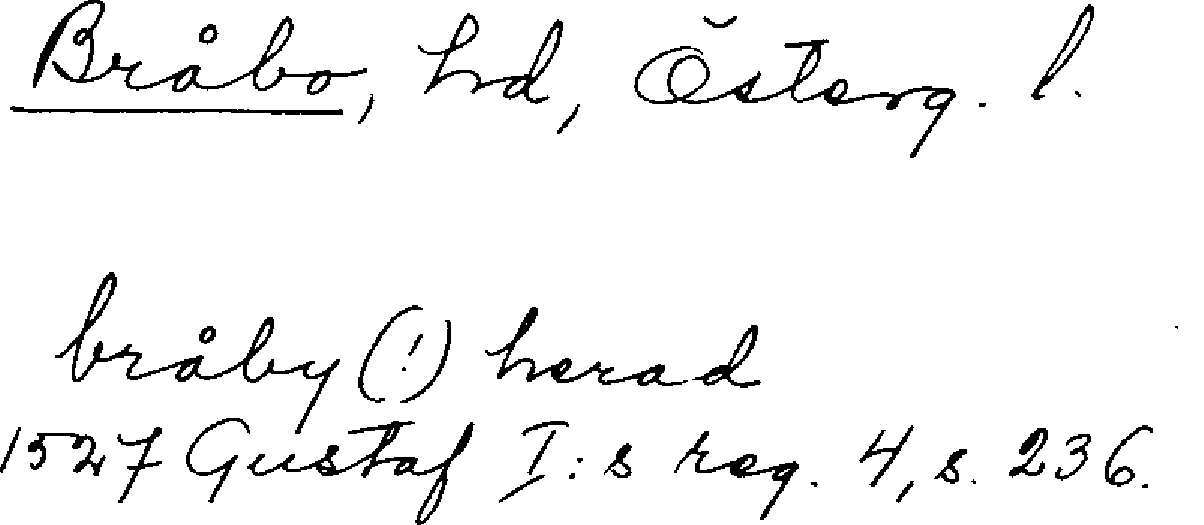 Bråbo, hd, Österg. l.
bråby (!) herad
1527 Gustaf I:s reg. 4, s. 236.